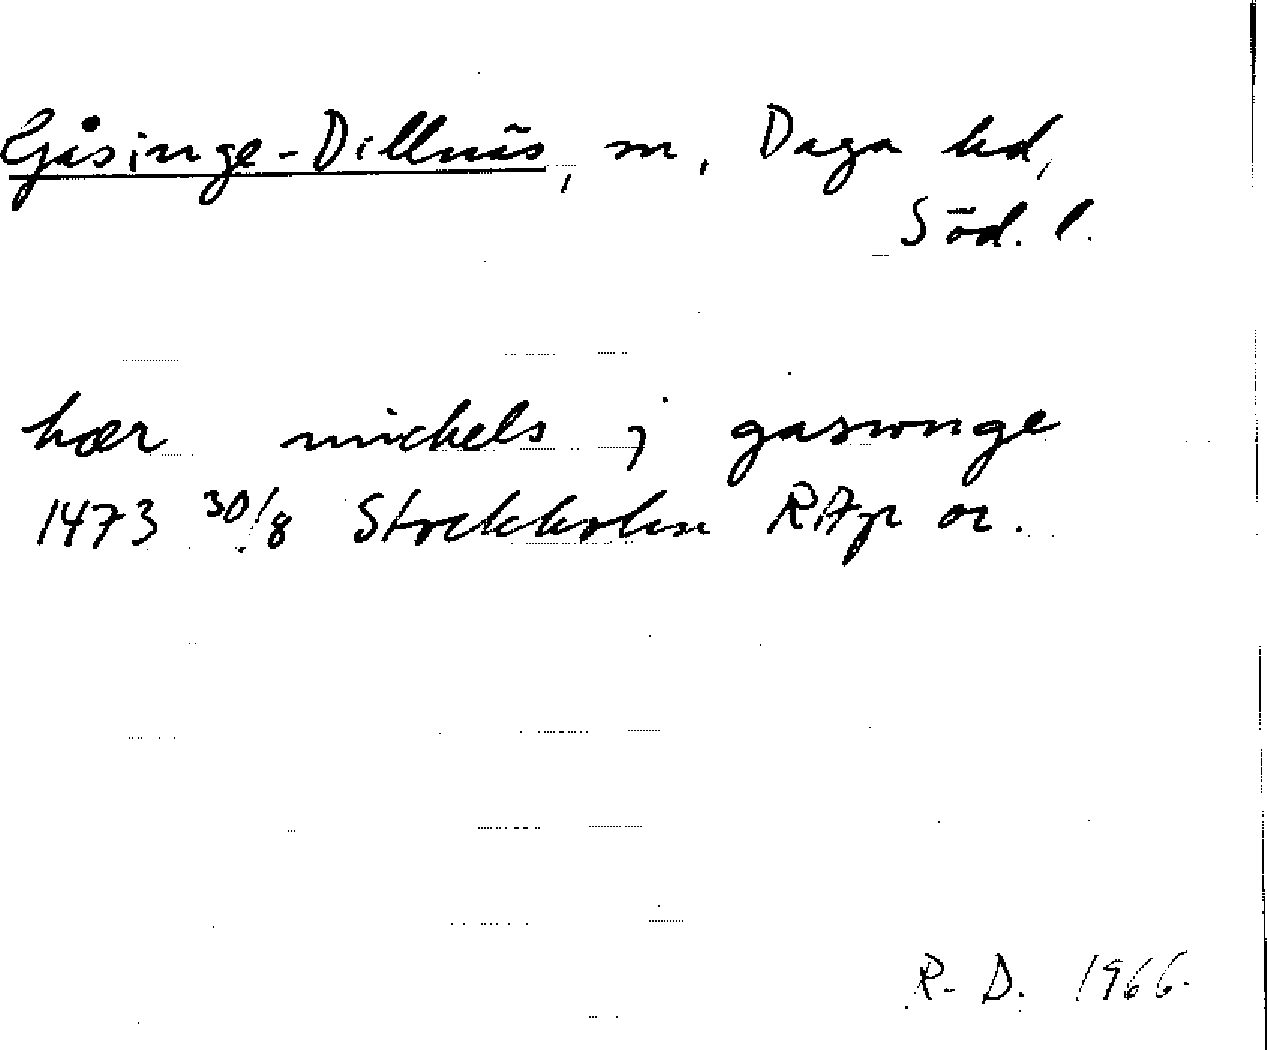 Gåsinge-Dillnäs, sn, Daga hd,
Söd. l.
hær mickels j gaswnge
1473 30/8 Stockholm RAp or.
R-D. 1966.